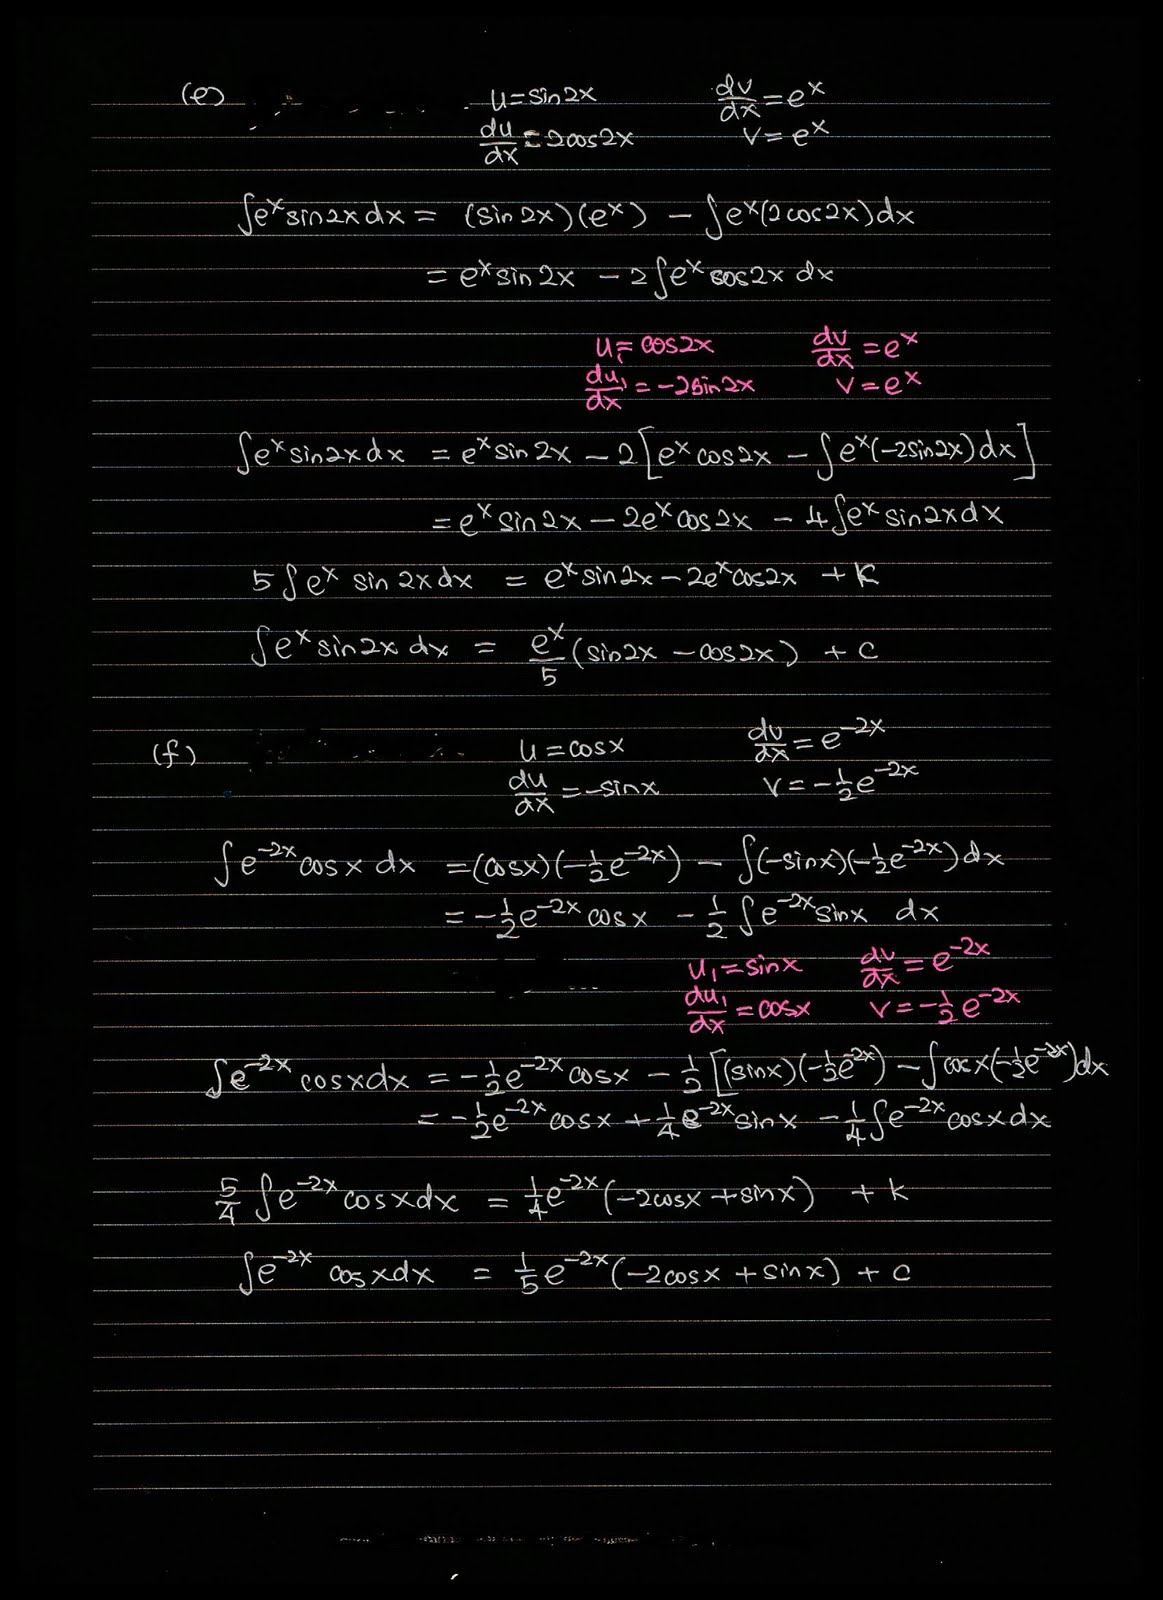 (e) u = sin2x dv/dx = e^x
du/dx = 2cos2x v = e^x
∫e^x sin2x dx = (sin2x)(e^x) − ∫e^x(2cos2x)dx
= e^x sin2x − 2∫e^x cos2x dx
u₁ = cos2x dv/dx = e^x
du₁/dx = −2sin2x v = e^x
∫e^x sin2x dx = e^x sin2x − 2[e^x cos2x − ∫e^x(−2sin2x)dx]
= e^x sin2x − 2e^x cos2x − 4∫e^x sin2x dx
5∫e^x sin2x dx = e^x sin2x − 2e^x cos2x + k
∫e^x sin2x dx = e^x/5 (sin2x − cos2x) + c
(f) u = cosx dv/dx = e^−2x
du/dx = −sinx v = −1/2 e^−2x
∫e^−2x cosx dx = (cosx)(−1/2 e^−2x) − ∫(−sinx)(−1/2 e^−2x)dx
= −1/2 e^−2x cosx − 1/2 ∫e^−2x sinx dx
u₁ = sinx dv/dx = e^−2x
du₁/dx = cosx v = −1/2 e^−2x
∫e^−2x cosx dx = −1/2 e^−2x cosx − 1/2 [(sinx)(−1/2 e^−2x) − ∫cosx(−1/2 e^−2x)dx
= −1/2 e^−2x cosx + 1/4 e^−2x sinx − 1/4 ∫e^−2x cosx dx
5/4 ∫e^−2x cosx dx = 1/4 e^−2x (−2cosx + sinx) + k
∫e^−2x cosx dx = 1/5 e^−2x (−2cosx + sinx) + c